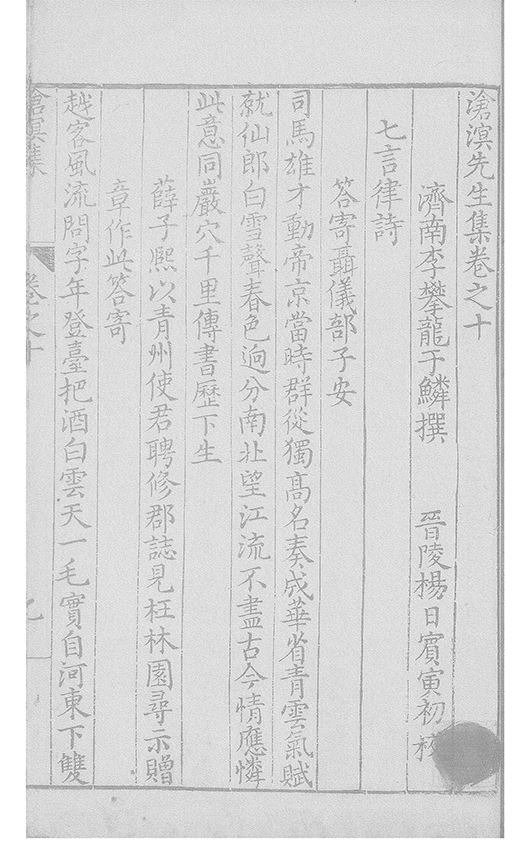 滄溟先生集卷之十
濟南李攀龍于鱗撰　晉陵楊日賓寅初校
七言律詩
答寄聶儀部子安
司馬雄才動帝京當時群從獨高名奏成華省青雲氣賦
就仙郎白雪聲春色逈分南北望江流不盡古今情應憐
此意同巖穴千里傳書歷下生
薛子熙以青州使君聘修郡誌見枉林園尋示贈
章作此答寄
越客風流問字年登臺把酒白雲天一毛實自河東下雙
滄溟集　卷之十